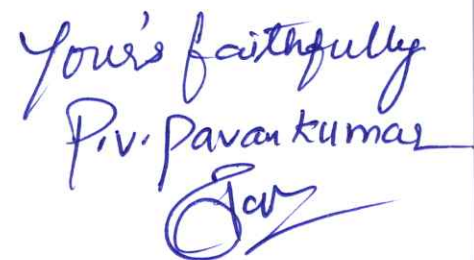 Your's faithfully
P.V. Pavan kumar